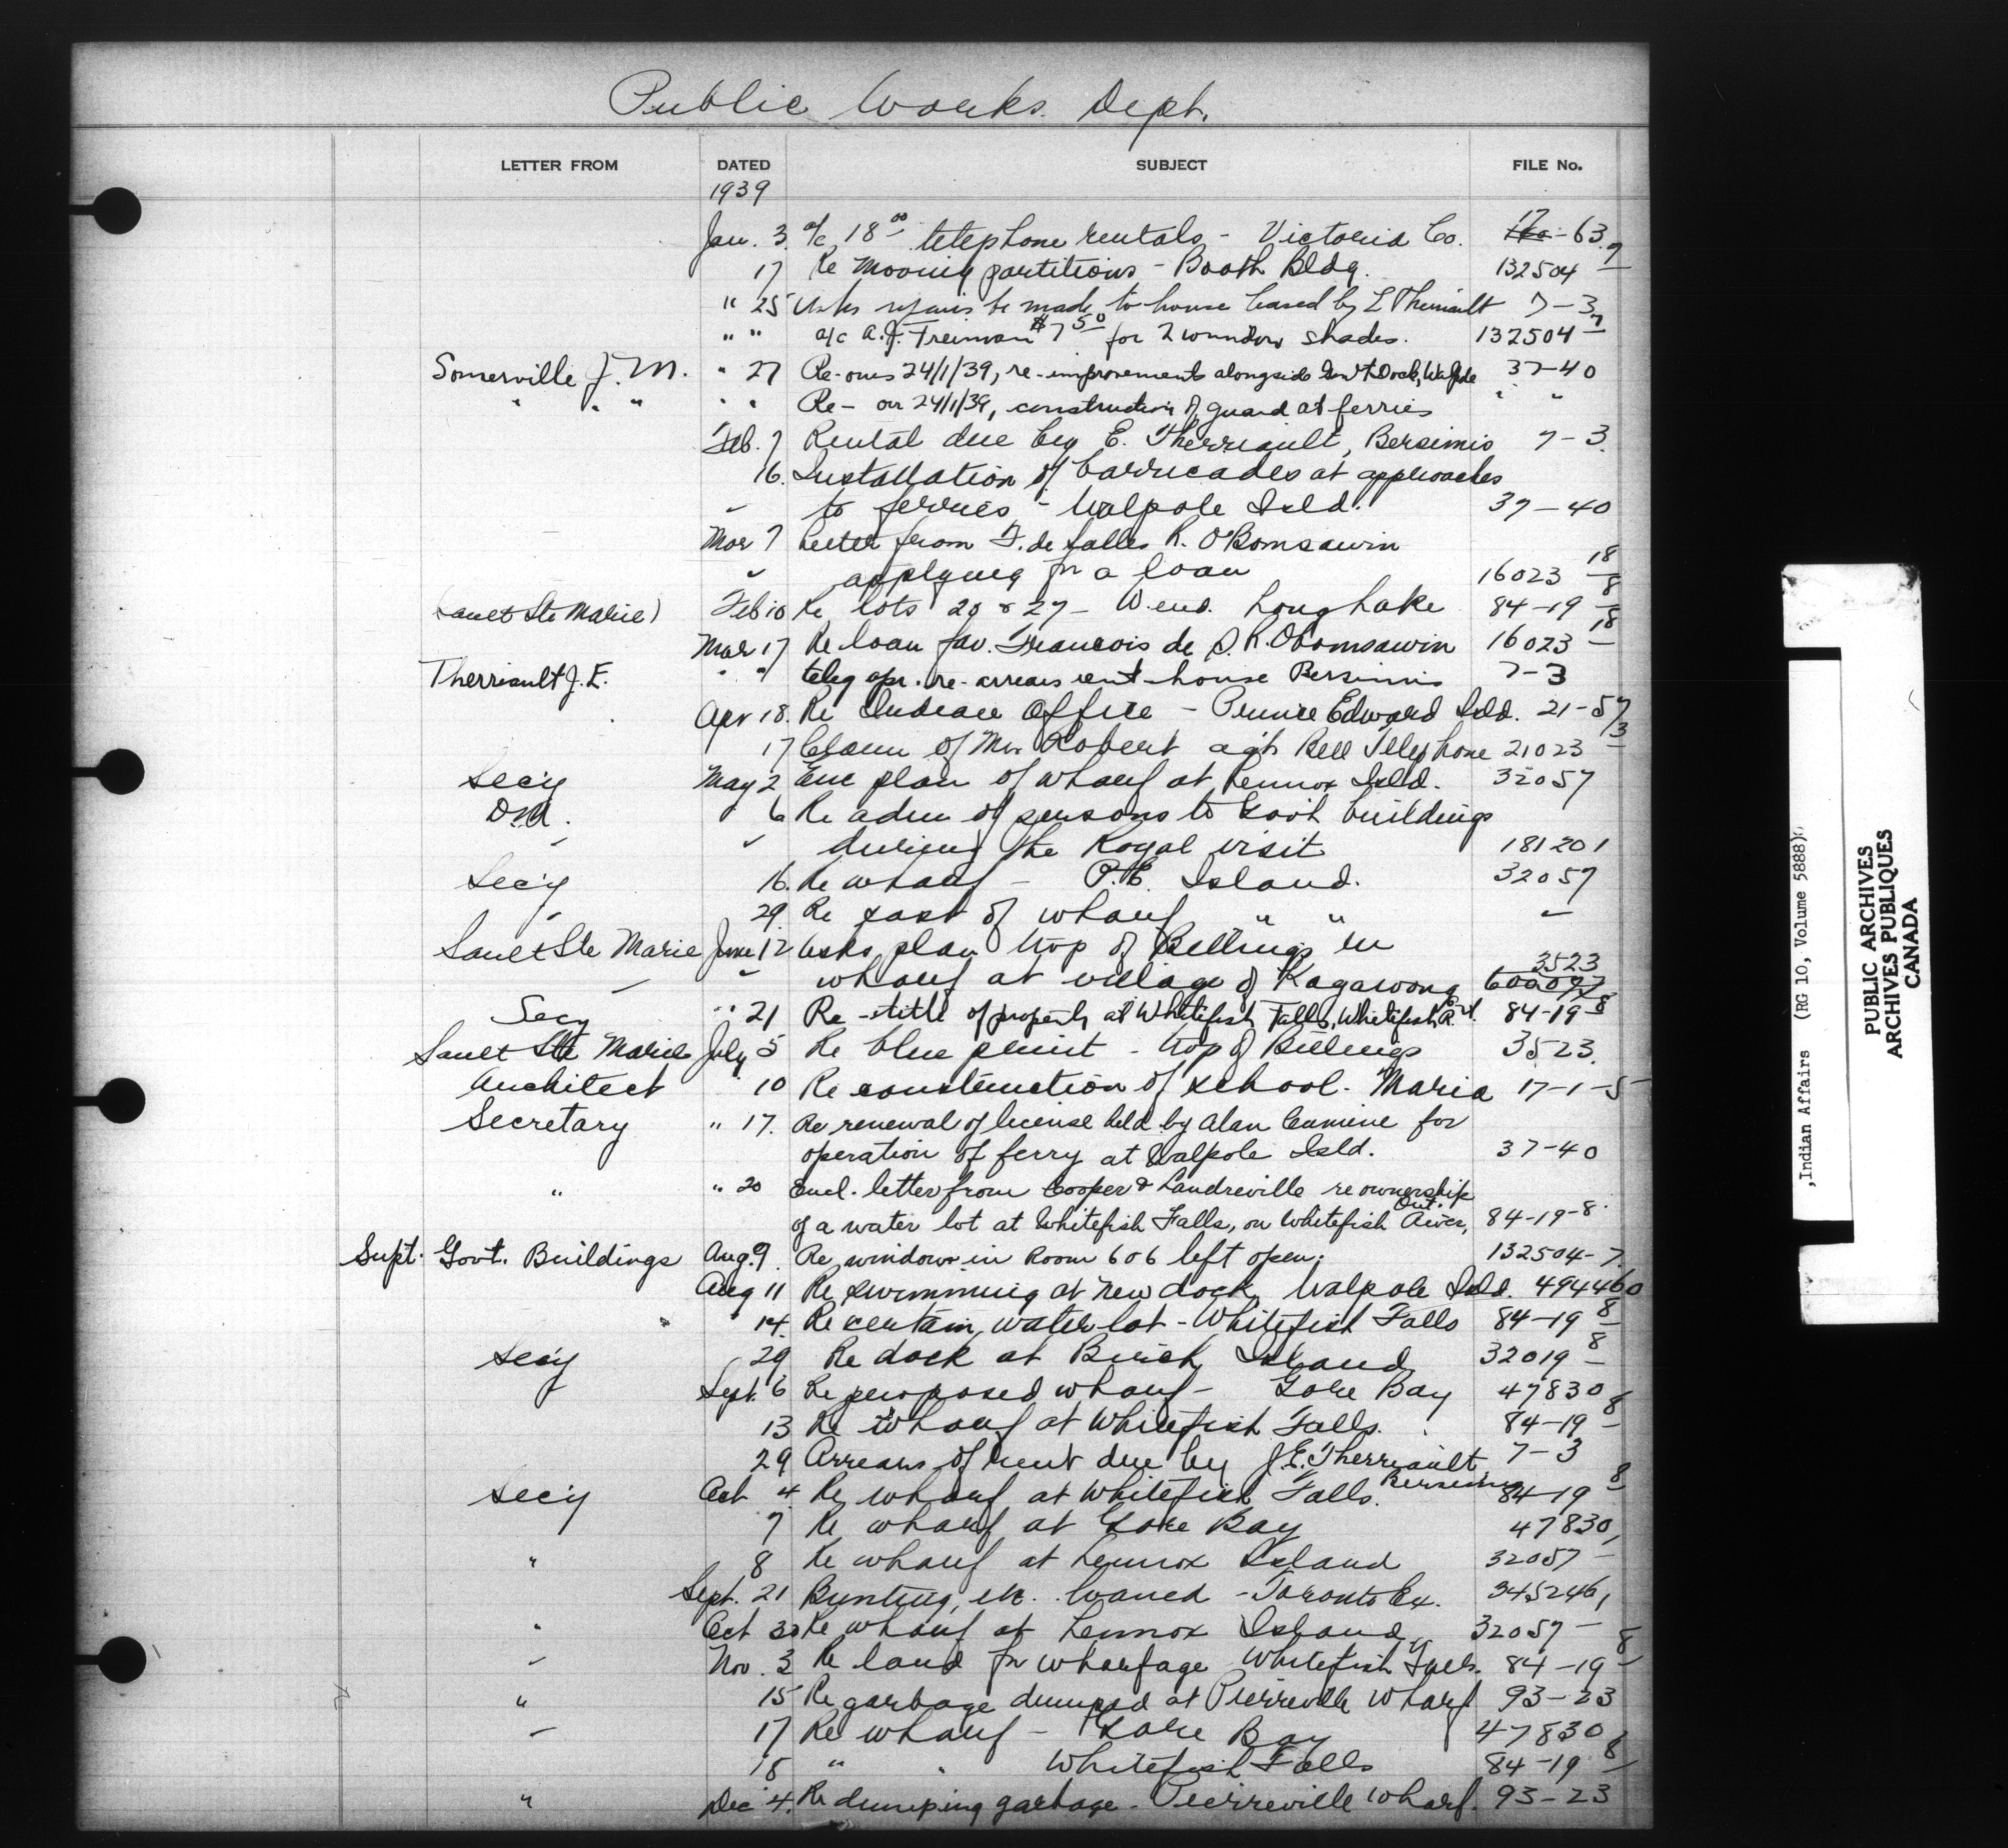 Public Works. Dept.
LETTER FROM DATED SUBJECT FILE No.
1939
Jan. 3. a/c 18.00 telephone rentals - Victoria Co. 17-63
17 Re Moving partitions - Booth Bldg. 132504-7
" 25 Asks repairs be made to house leased by E Theriault 7-3
" " a/c A.J. Freiman $7.50 for 2 window shades. 132504-7
Somerville J. M. " 27 Re-ours 24/1/39, re-improvements alongside Gov't Dock, Walpole 37-40
" " " " " Re- our 24/1/39, construction of guard at ferries " "
Feb. 7 Rental due by E. Therriault, Bersimis 7-3.
16. Installation of barricades at approaches
" to ferries - Walpole Isld. 37-40
Mar 7 Letter from F. de Salles R. O'Bomsawin
" applying for a loan 16023-18
Sault Ste Marie) Feb 10 Re lots 20 & 27 - W. end. Long Lake 84-19-8
Mar 17 Re loan fav. Francois de S. R. Obomsawin 16023-18
Therriault J. E. " " teleg. re-arrears rent-house Bersimis 7-3
Apr 18. Re Indian Office - Prince Edward Isld. 21-57
17 Claim of Mr. Robert agst Bell Telephone 21023-13
Sec'y May 2 Enc plan of wharf at Lennox Isld. 32057
D.M. 6 Re adm of persons to Govt buildings
" " during the Royal visit 181201
Sec'y 16. Re wharf - P.E. Island. 32057
" 29. Re cost of wharf " " "
Sault Ste Marie June 12 Asks plan twp of Billings in
" " wharf at village of Kagawong 3523
Secy " 21 Re-title of property at Whitefish Falls, Whitefish R. 84-19-8
Sault Ste Marie July 5 Re blue print - twp of Billings 3523.
Architect 10 Re construction of school - Maria 17-1-5
Secretary " 17. Re renewal of license held by Alan for
operation of ferry at Walpole Isld. 37-40
" " 20 Encl. letter from Cooper & Landreville re ownership
of a water lot at Whitefish Falls, on Whitefish River, Ont. 84-19-8.
Supt. Govt. Buildings Aug. 9. Re window in Room 606 left open. 132504-7.
Aug 11 Re swimming at new dock, Walpole Isld. 494460
" 14. Re certain water lot - Whitefish Falls 84-19-8
Sec'y 29 Re dock at Birch Island 32019-8
Sept. 6 Re proposed wharf - Gore Bay 47830
13 Re wharf at Whitefish Falls. 84-19-8
29 Arrears of rent due by J. E. Therriault, Bersimis 7-3
Sec'y Oct 4. Re wharf at Whitefish Falls. 84-19-8
7 Re wharf at Gore Bay 47830
" 8 Re wharf at Lennox Island 32057-
Sept. 21 Bunting, etc. loaned - Toronto Ex. 345246
" Oct 30 Re wharf at Lennox Island 32057-
" Nov. 3 Re land for wharfage Whitefish Falls. 84-19-8
" 15 Re garbage dumped at Pierreville Wharf 93-23
" 17 Re wharf - Gore Bay 47830
18 " " Whitefish Falls 84-19-8
" Dec 4. Re dumping garbage - Pierreville Wharf. 93-23
,Indian Affairs (RG 10, Volume 5888)
PUBLIC ARCHIVES
ARCHIVES PUBLIQUES
CANADA